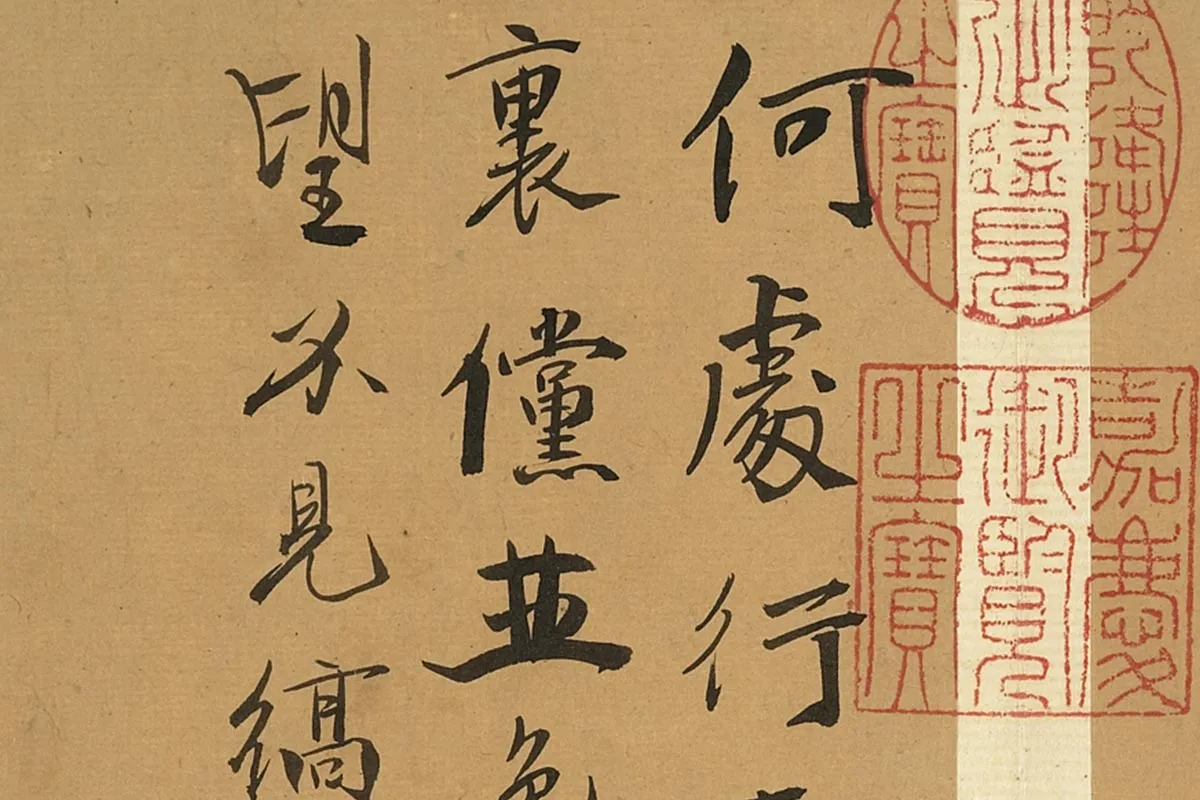 乾隆
御覽
之寶
嘉慶
御覽
之寶
何處行
裏儻並
望不見縞